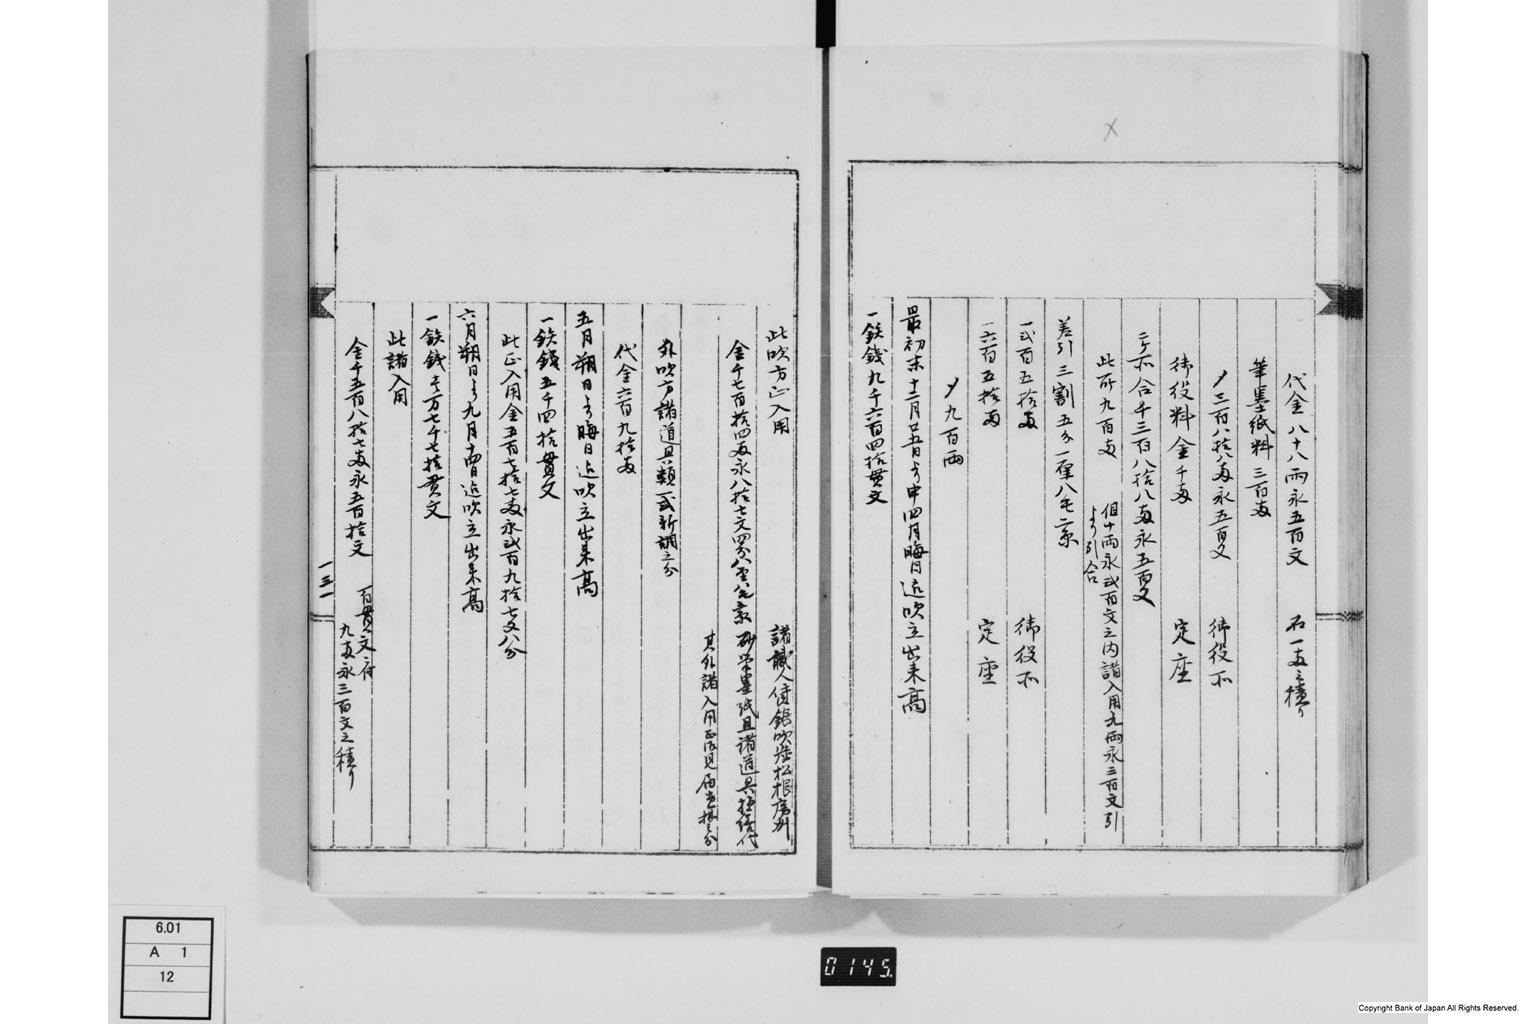 代金八十八両永五百文 石一両之積り
筆墨紙料三百両
〆三百八拾八両永五百文 御役所
御役料金千両 定座
二口合千三百八拾八両永五百文
此所九百両 但十両永弐百文之内諸入用九両永三百文引
より引合
差引三割五分一厘八毛
一弐百五拾両 御役所
一六百五拾両 定座
〆九百両
最初未十二月廿五日より申四月晦日迄吹立出来高
一鉄銭九千六百四拾貫文
此吹方正入用 諸職人
金千七百拾四両永八拾七文四分 筆墨紙且諸道具
其外諸入用
外吹方諸道具類一式新調之分
代金六百九拾両
五月朔日より晦日迄吹立出来高
一鉄銭五千四拾貫文
此正入用金五百七拾七両永弐百九拾七文八分
六月朔日より九月十四日迄吹立出来高
一鉄銭壱万七千七拾貫文
此諸入用
金千五百八拾七両永五百拾文 百貫文ニ付
九両永三百文之積り
一三一
6.01
A 1
12
0145.
Copyright Bank of Japan All Rights Reserved.